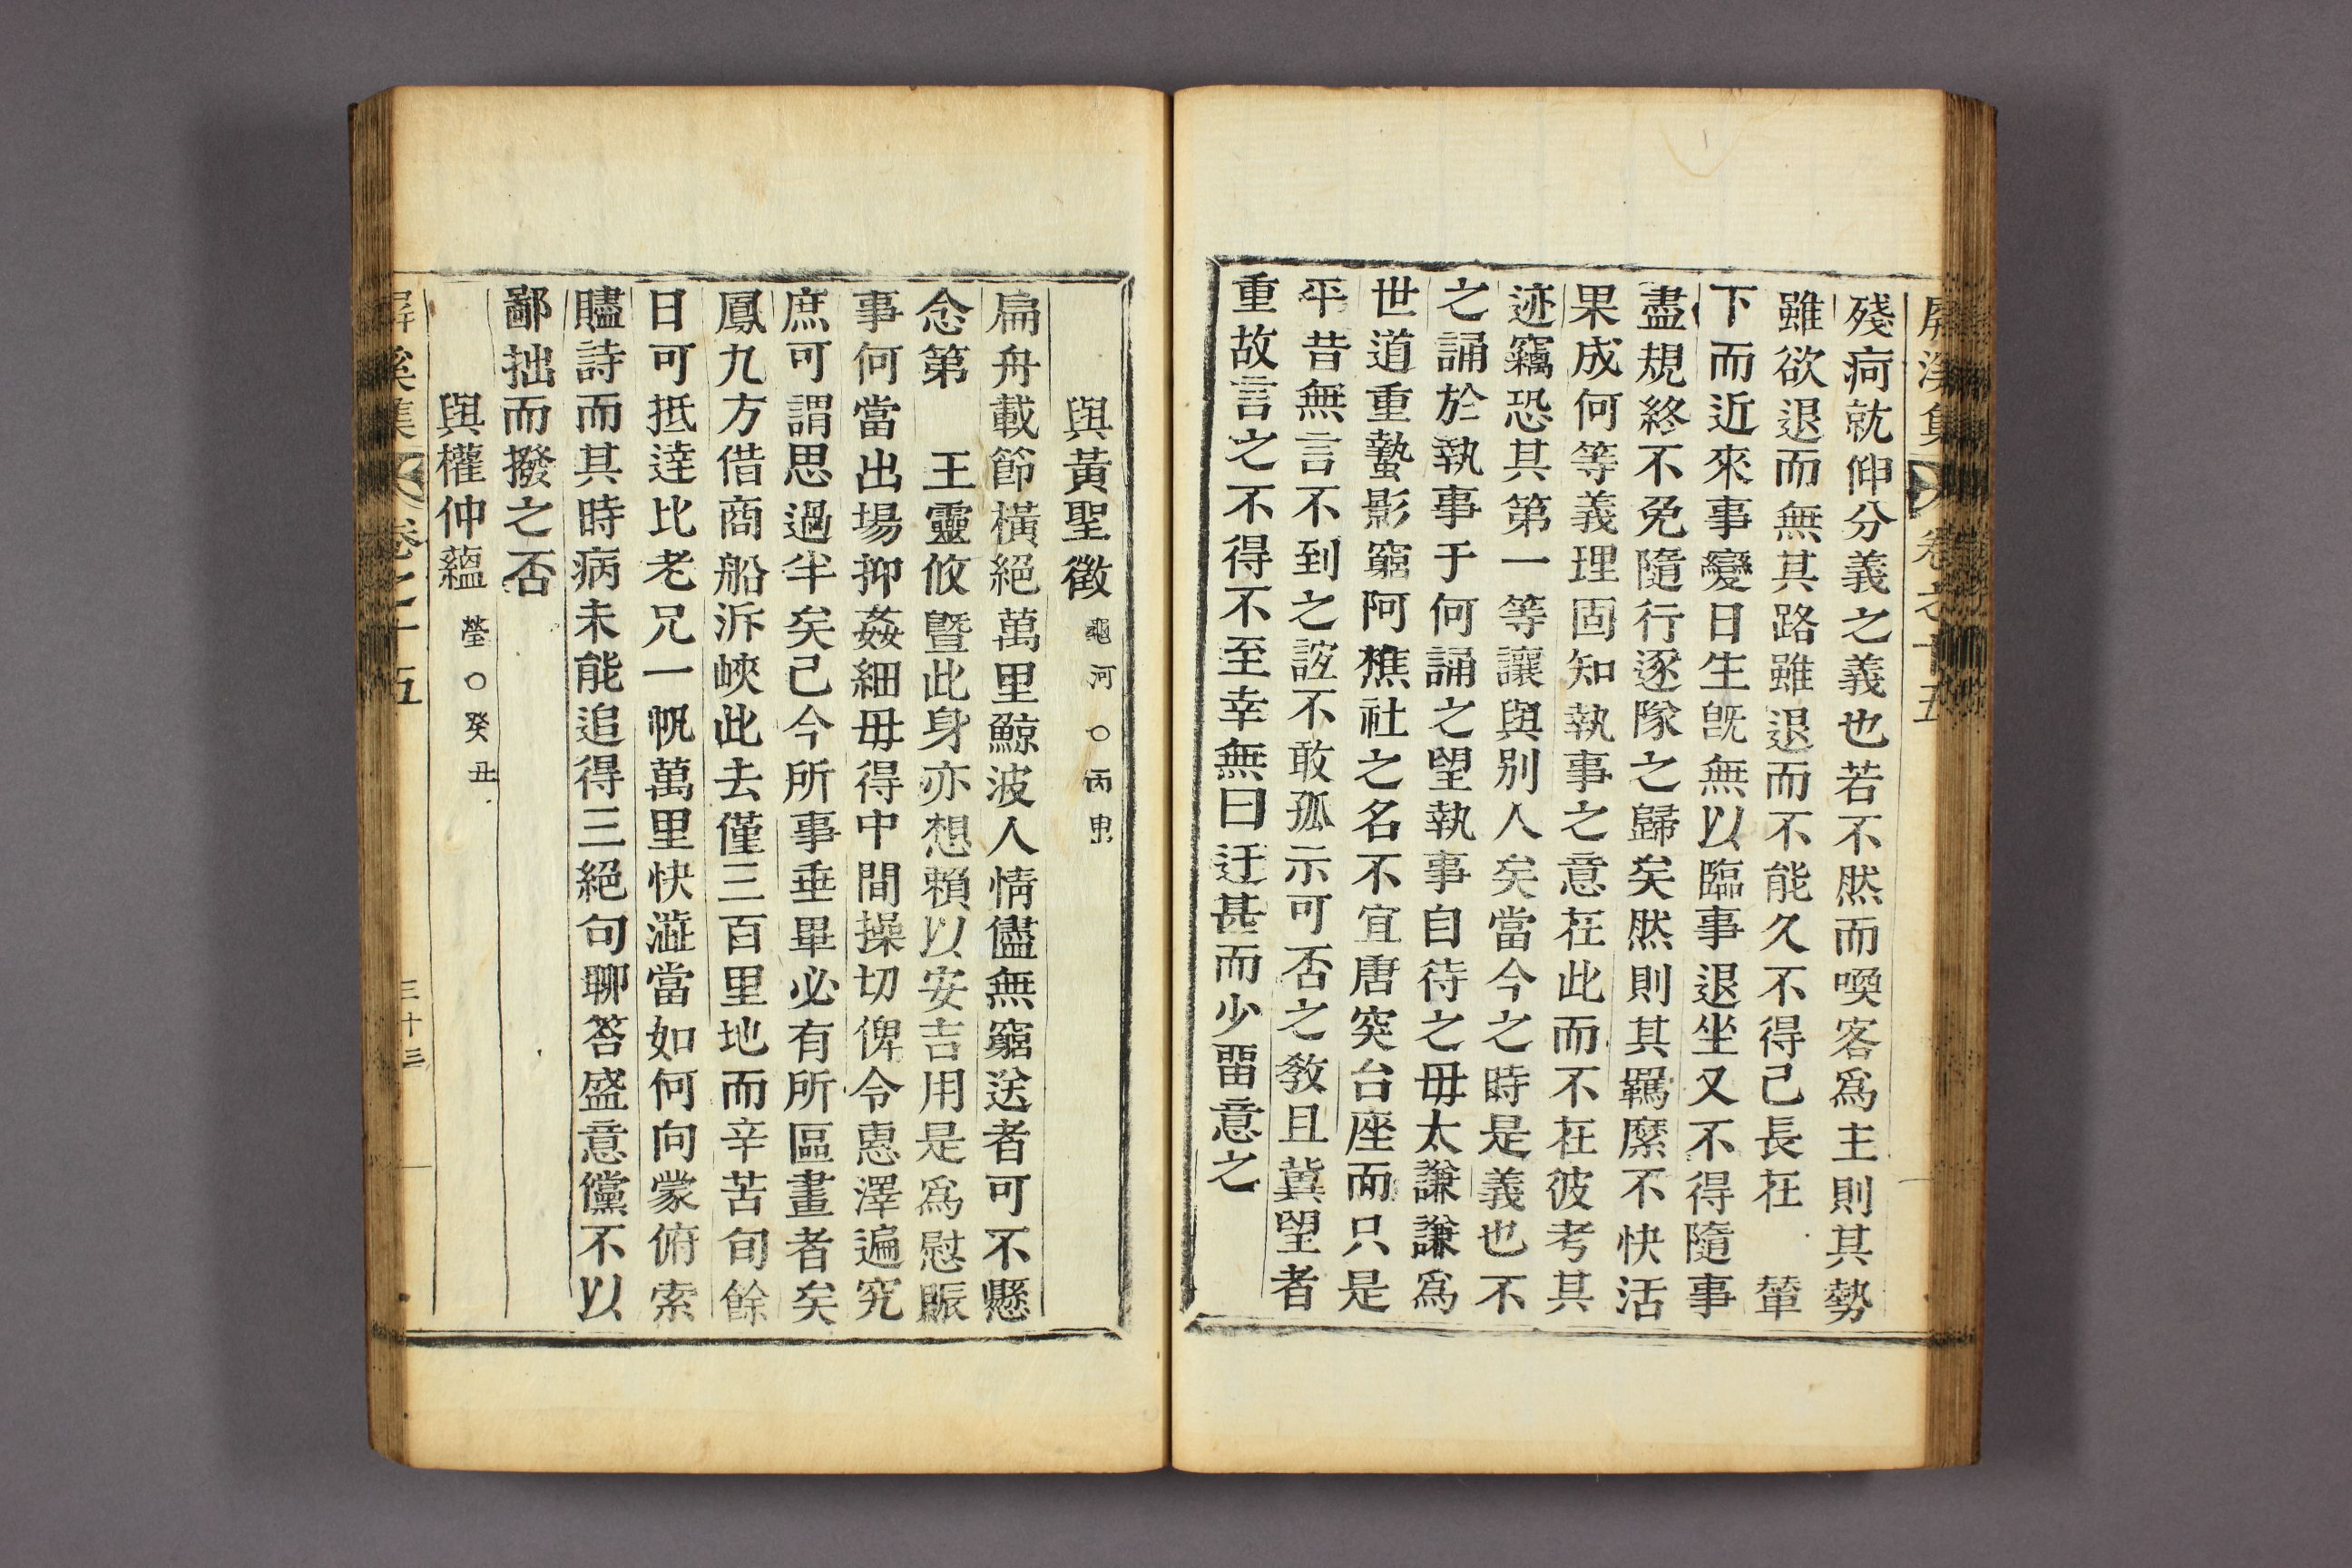 屛溪集 卷之十五
殘疴就伸分義之義也若不然而喚客爲主則其勢
雖欲退而無其路雖退而不能久不得已長在 輦
下而近來事變日生旣無以臨事退坐又不得隨事
盡規終不免隨行逐隊之歸矣然則其羈縻不快活
果成何等義理固知執事之意在此而不在彼考其
迹竊恐其第一等讓與別人矣當今之時是義也不
之誦於執事于何誦之望執事自待之毋太謙謙爲
世道重蟄影窮阿樵社之名不宜唐突台座而只是
平昔無言不到之誼不敢孤示可否之敎且冀望者
重故言之不得不至幸無曰迂甚而少留意之
與黃聖徵 龜河○丙申
扁舟載節橫絕萬里鯨波人情儘無窮送者可不懸
念第 王靈攸曁此身亦想賴以安吉用是爲慰賑
事何當出場抑姦細毋得中間操切俾令惠澤遍究
庶可謂思過半矣已今所事垂畢必有所區畫者矣
鳳九方借商船泝峽此去僅三百里地而辛苦旬餘
日可抵達比老兄一帆萬里快澁當如何向蒙俯索
贐詩而其時病未能追得三絕句聊答盛意儻不以
鄙拙而撥之否
與權仲蘊 瑩○癸丑
屛溪集 卷之十五 三十三